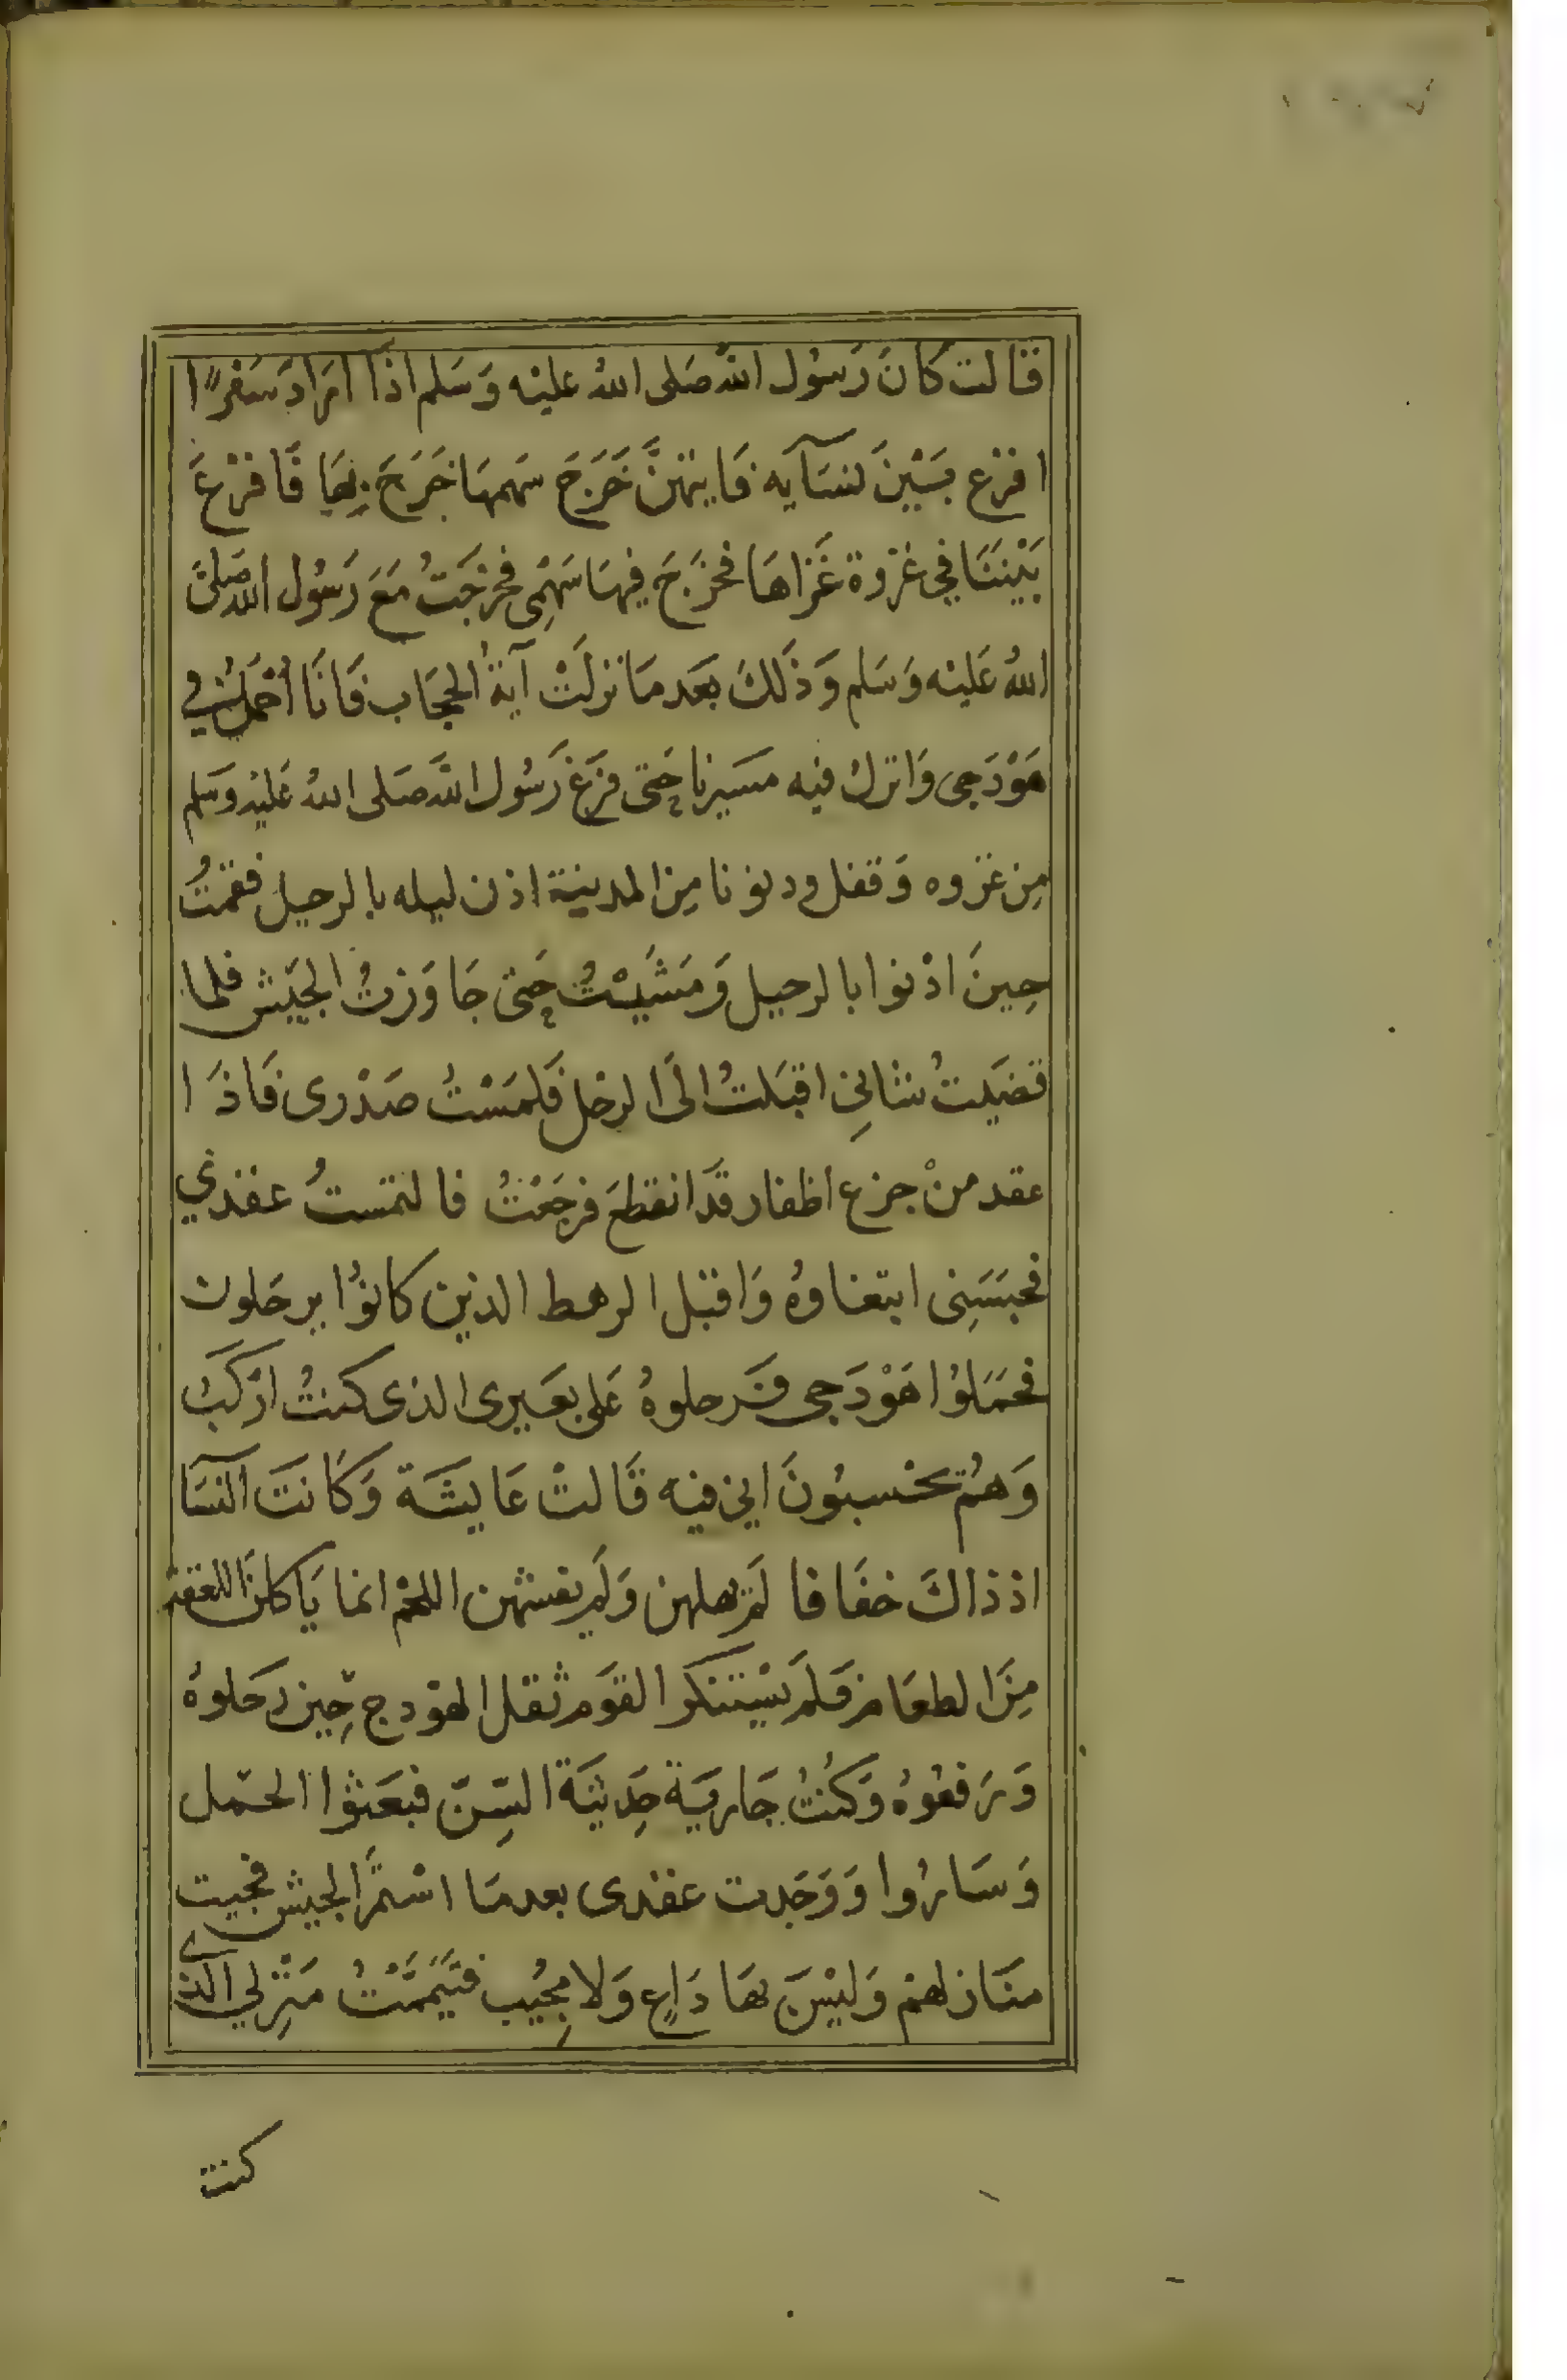 قالت كانَ رَسُول اللّه صَلى اللهُ عليْه وَسَلم اذَا ارَادَ سَفرًا
اقرْع بَيْنَ لنسَآيه فَايتهنَّ خَرَجَ سَهمهَا خَرَجَ بِهَا فَاقرْعَ
بَيْننَا في غزْوة غَزاهَا فخرَجَ فيهَا سَهْمِى فخرَجَتُ مَعَ رَسُول الله صَلىَّ
اللهُ عَليْه وَسَلم وَذَلكَ بعَد مَا نزلَتْ آيَةُ الحجَاب فَانَا احْمَلُ في
هَوْدَجى وَانزلُ فيْه مسَيرنا حَتى فرَغ رَسُول اللَّه صَلى اللهُ عَليْه وسَلم
مِن غزوه وَقفل ودنونا مِن المدينة اذن ليله بالرحيل فقمتُ
حِينَ اذنوا بالرحيل وَمَشَيْتُ حَتى جَاوَزتُ الجَيْش فلما
قضَيتُ شانِى اقبَلتُ الَى الرحْل فَلمسْتُ صَدْرى فَاذَا
عقد منْ جزع اظفار قدَ انقطعَ فرجَعْتُ فالتمستُ عقدي
فحبسَنِى ابتغاوهُ وَاقبل الرهط الذين كانوُا يرحَلون
فحمَلوُا هَوْدَجى فَرحلوهُ عَلى بعَيرى الذى كنتُ ارْكَبُ
وَهُم يحْسبُونَ اني فيْه قَالتْ عَايشَة وَكانَتَ النسَآ
اذ ذاكَ خفَافا لَم يهبلهن وَلَم يغشهن اللحْم انما يَاكلنَ العلقة
مِنَ الطعَام فَلَم يسْتنكر القوَم ثقل الهوْدج حِين رَحَلوهُ
وَرَفعُوهُ وَكنُتُ جَاريَة حَدِيثَة السِنّ فبعَثوُا الحمَل
وَسَارُوا وَوَجَدت عقدى بعد مَا اسْتمرَّ الجيش فجيت
منَازلهمْ وَليْسَ بهَا دَاعٍ وَلا مِجُيب فتيَممَّتُ مَنْزِلي الذى
كنت